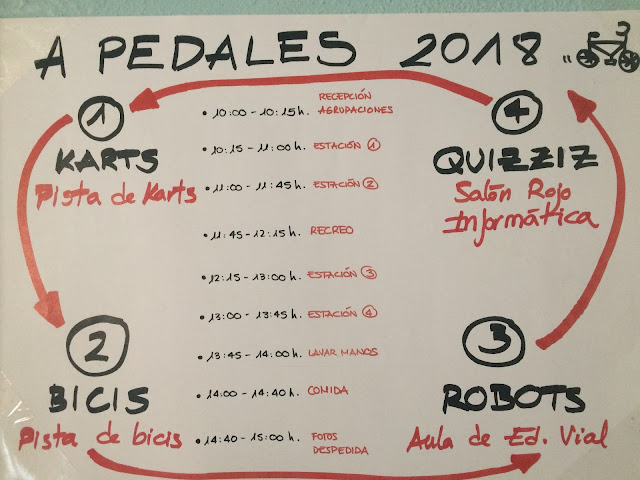 A PEDALES 2018
1
KARTS
Pista de Karts
2
BICIS
Pista de bicis
• 10:00 - 10:15h. RECEPCIÓN AGRUPACIONES
• 10:15 - 11:00h. ESTACIÓN 1
• 11:00 - 11:45h. ESTACIÓN 2
• 11:45 - 12:15h. RECREO
• 12:15 - 13:00h. ESTACIÓN 3
• 13:00 - 13:45h. ESTACIÓN 4
• 13:45 - 14:00h. LAVAR MANOS
• 14:00 - 14:40h. COMIDA
• 14:40 - 15:00h. FOTOS DESPEDIDA
4
QUIZZIZ
Salón Rojo
Informática
3
ROBOTS
Aula de Ed. Vial